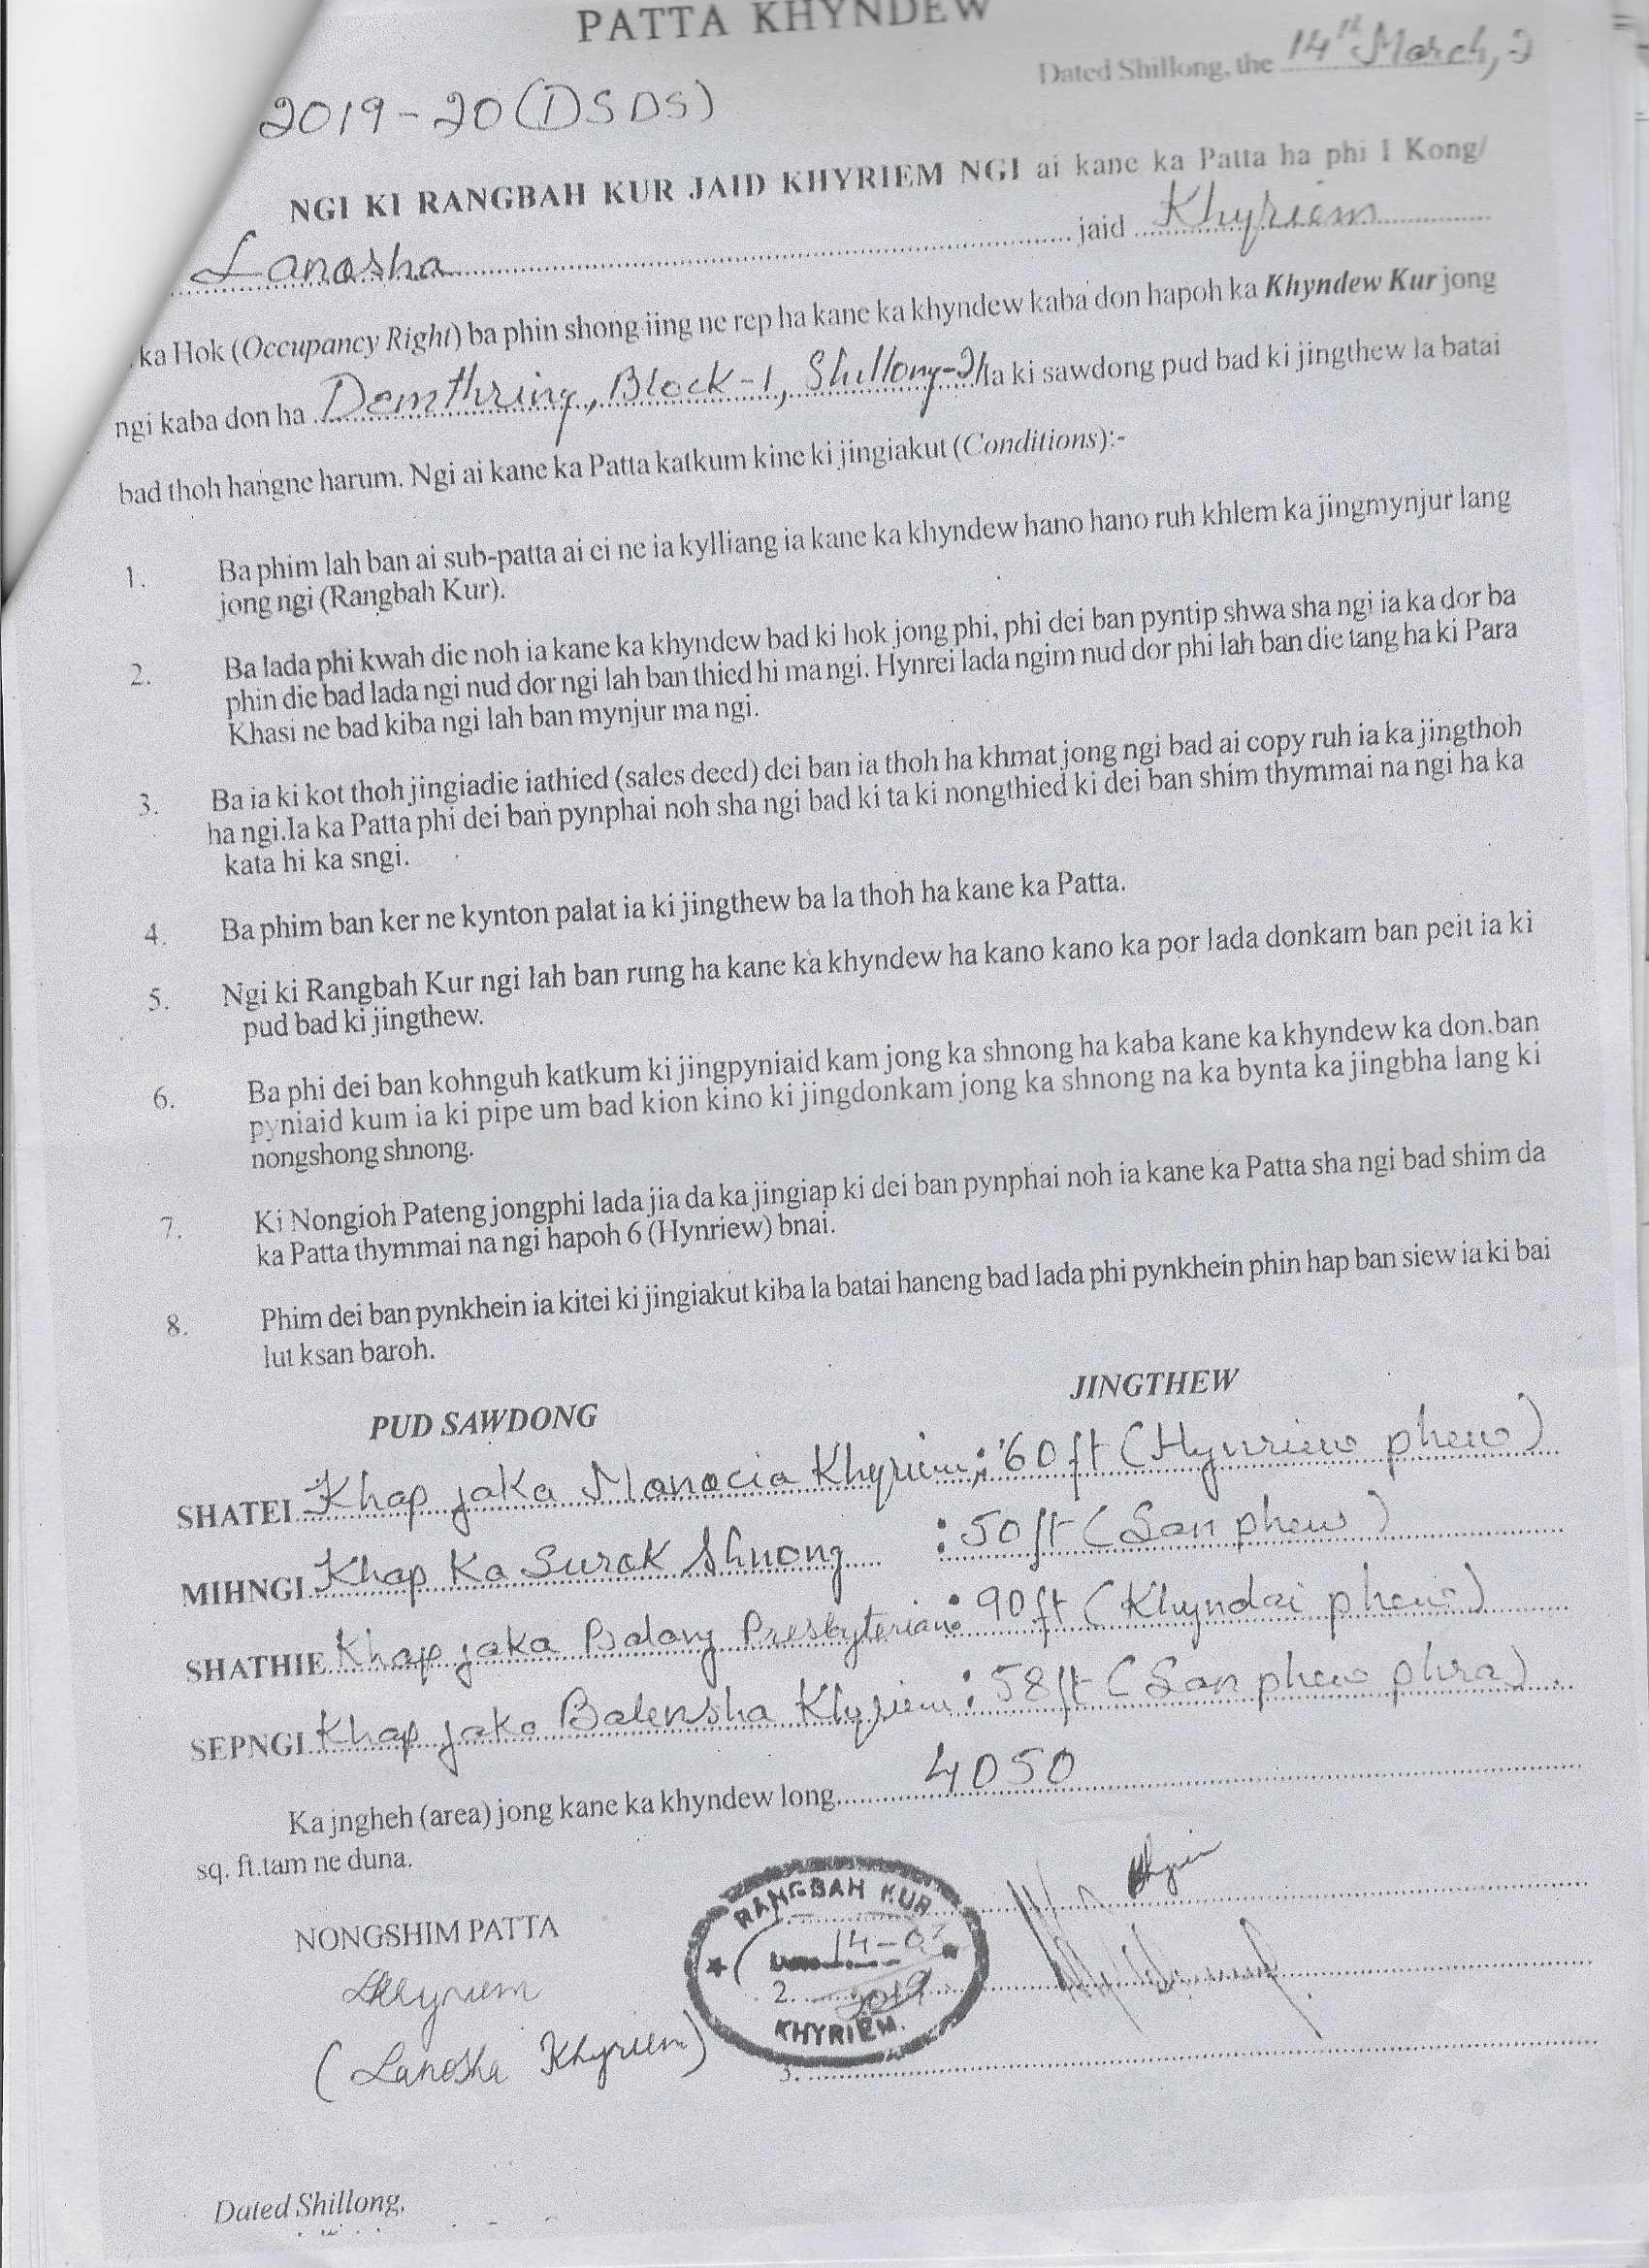 PATTA KHYNDEW
Dated Shillong, the 14th March, 2
2019-20 (DSDS)
NGI KI RANGBAH KUR JAID KHYRIEM NGI ai kane ka Patta ha phi I Kong/
Lanosha jaid Khyriem
ka Hok (Occupancy Right) ba phin shong iing ne rep ha kane ka khyndew kaba don hapoh ka Khyndew Kur jong
ngi kaba don ha Demthring, Block-1, Shillong-21 la ki sawdong pud bad ki jingthew la batai
bad thoh hangne harum. Ngi ai kane ka Patta katkum kine ki jingiakut (Conditions):-
1. Ba phim lah ban ai sub-patta ai ei ne ia kylliang ia kane ka khyndew hano hano ruh khlem ka jingmynjur lang
jong ngi (Rangbah Kur).
2. Ba lada phi kwah die noh ia kane ka khyndew bad ki hok jong phi, phi dei ban pyntip shwa sha ngi ia ka dor ba
phin die bad lada ngi nud dor ngi lah ban thied hi ma ngi. Hynrei lada ngim nud dor phi lah ban die tang ha ki Para
Khasi ne bad kiba ngi lah ban mynjur ma ngi.
3. Ba ia ki kot thoh jingiadie iathied (sales deed) dei ban ia thoh ha khmat jong ngi bad ai copy ruh ia ka jingthoh
ha ngi.Ia ka Patta phi dei ban pynphai noh sha ngi bad ki ta ki nongthied ki dei ban shim thymmai na ngi ha ka
kata hi ka sngi.
4. Ba phim ban ker ne kynton palat ia ki jingthew ba la thoh ha kane ka Patta.
5. Ngi ki Rangbah Kur ngi lah ban rung ha kane ka khyndew ha kano kano ka por lada donkam ban peit ia ki
pud bad ki jingthew.
6. Ba phi dei ban kohnguh katkum ki jingpyniaid kam jong ka shnong ha kaba kane ka khyndew ka don.ban
pyniaid kum ia ki pipe um bad kion kino ki jingdonkam jong ka shnong na ka bynta ka jingbha lang ki
nongshong shnong.
7. Ki Nongioh Pateng jongphi lada jia da ka jingiap ki dei ban pynphai noh ia kane ka Patta sha ngi bad shim da
ka Patta thymmai na ngi hapoh 6 (Hynriew) bnai.
8. Phim dei ban pynkhein ia kitei ki jingiakut kiba la batai haneng bad lada phi pynkhein phin hap ban siew ia ki bai
lut ksan baroh.
PUD SAWDONG JINGTHEW
SHATEI Khap jaka Monocia Khyriem : 60 ft (Hynriew phew)
MIHNGI Khap Ka Surok Shnong : 50 ft (San phew)
SHATHIE Khap jaka Balang Presbyterian : 90 ft (Khyndai phew)
SEPNGI Khap jaka Balensha Khyriem : 58 ft (San phew phra)
Ka jngheh (area) jong kane ka khyndew long 4050
sq. ft.tam ne duna.
NONGSHIM PATTA
Lkhyriem
(Lanosha Khyriem)
RANGBAH KUR
14-03
2. 2019
KHYRIEM.
3.
Dated Shillong,